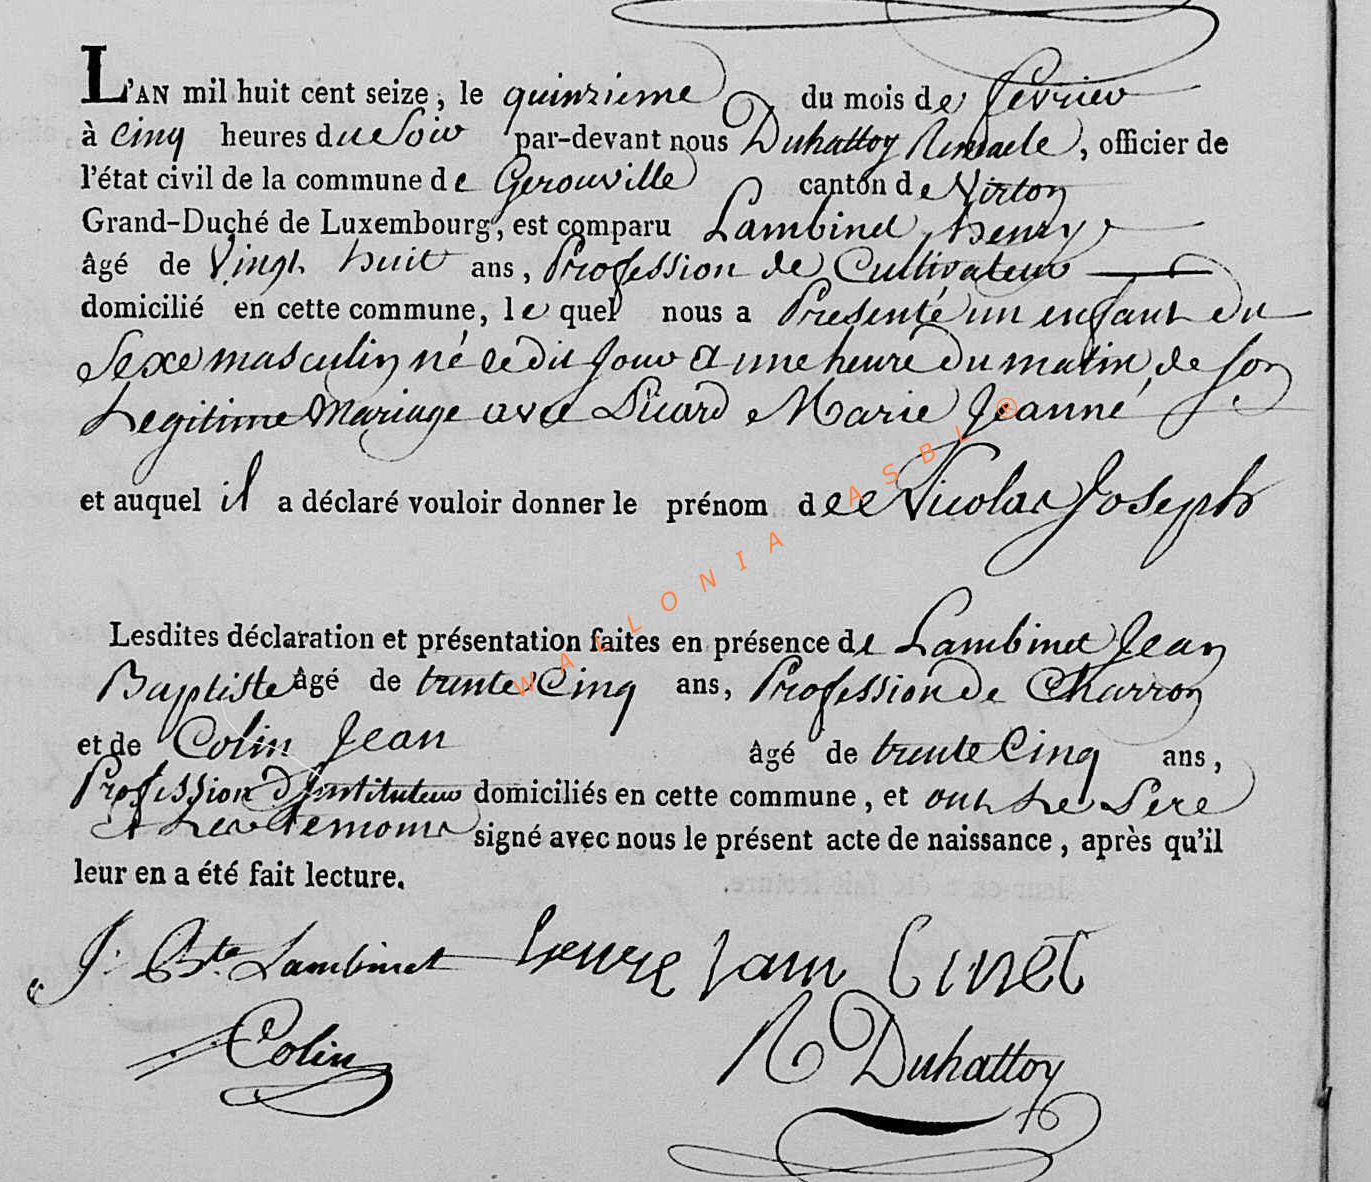 L'AN mil huit cent seize, le quinzieme du mois de fevrier
à cinq heures du Soir par-devant nous Duhattoy Remacle, officier de
l'état civil de la commune de Gerouville canton de Virton
Grand-Duché de Luxembourg, est comparu Lambinet henry
âgé de Vingt huit ans, Profession de Cultivateur
domicilié en cette commune, le quel nous a Presenté un enfant du
Sexe masculin né cedit jour a une heure du matin, de son
Legitime Mariage avec Picard Marie Jeanne
et auquel il a déclaré vouloir donner le prénom de Nicolas Joseph
Lesdites déclaration et présentation faites en présence de Lambinet Jean
Baptiste âgé de trente Cinq ans, Profession de Charron
et de Colin Jean âgé de trente Cinq ans,
Profession d'Instituteur domiciliés en cette commune, et ont Le Pere
et Les temoins signé avec nous le présent acte de naissance, après qu'il
leur en a été fait lecture.
J: Bte Lambinet henre
Colin R Duhattoy
WALLONIA ASBL ©